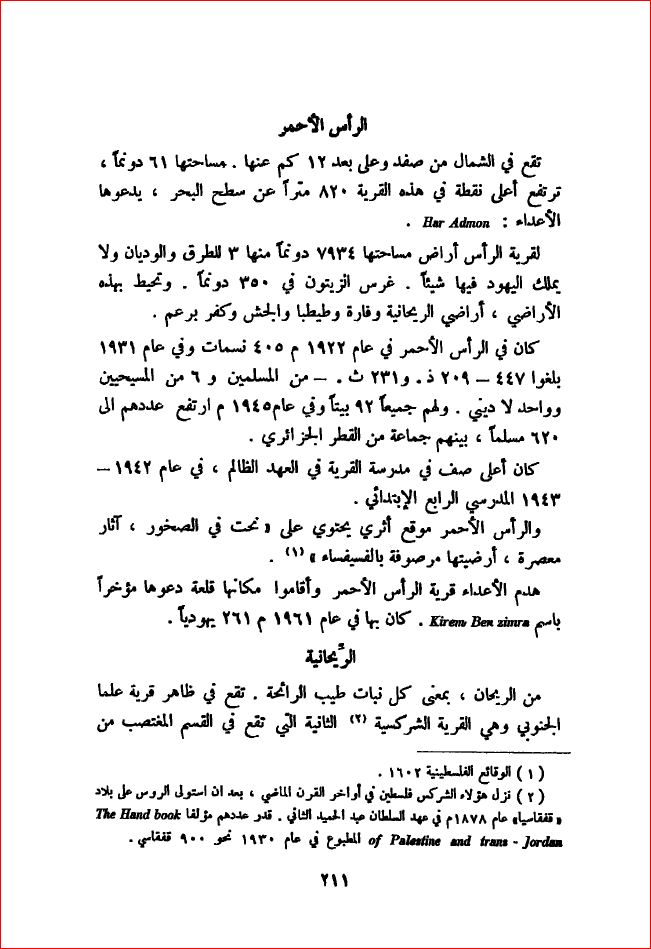 الرأس الأحمر
تقع في الشمال من صفد وعلى بعد ١٢ كم عنها . مساحتها ٦١ دونماً ،
ترتفع أعلى نقطة في هذه القرية ٨٢٠ متراً عن سطح البحر ، يدعوها
الأعداء : Har Admon .
لقرية الرأس أراض مساحتها ٧٩٣٤ دونماً منها ٣ للطرق والوديان ولا
يملك اليهود فيها شيئاً . غرس الزيتون في ٣٥٠ دونماً . وتحيط بهذه
الأراضي ، أراضي الريحانية وفارة وطيطبا والجش وكفر برعم .
كان في الرأس الأحمر في عام ١٩٢٢ م ٤٠٥ نسمات وفي عام ١٩٣١
بلغوا ٤٤٧ – ٢٠٩ ذ. و٢٣١ ث. – من المسلمين و ٦ من المسيحيين
وواحد لا ديني . ولهم جميعاً ٩٢ بيتاً وفي عام١٩٤٥ م ارتفع عددهم الى
٦٢٠ مسلماً ، بينهم جماعة من القطر الجزائري .
كان أعلى صف في مدرسة القرية في العهد الظالم ، في عام ١٩٤٢ –
١٩٤٣ المدرسي الرابع الإبتدائي .
والرأس الأحمر موقع أثري يحتوي على « نحت في الصخور ، آثار
معصرة ، أرضيتها مرصوفة بالفسيفساء » (١) .
هدم الأعداء قرية الرأس الأحمر وأقاموا مكانها قلعة دعوها مؤخراً
باسم Kirem Ben zimra . كان بها في عام ١٩٦١ م ٢٦١ يهودياً .
الرَّيحانية
من الريحان ، بمعنى كل نبات طيب الرائحة . تقع في ظاهر قرية علما
الجنوبي وهي القرية الشركسية (٢) الثانية التي تقع في القسم المغتصب من
( ١ ) الوقائع الفلسطينية ١٦٠٢ .
( ٢ ) نزل هؤلاء الشركس فلسطين في أواخر القرن الماضي ، بعد ان استولى الروس على بلاد
« قفقاسيا» عام ١٨٧٨م في عهد السلطان عبد الحميد الثاني . قدر عددهم مؤلفا The Hand book
of Palestine and trans - Jordan المطبوع في عام ١٩٣٠ نحو ٩٠٠ قفقاسي .
٢١١